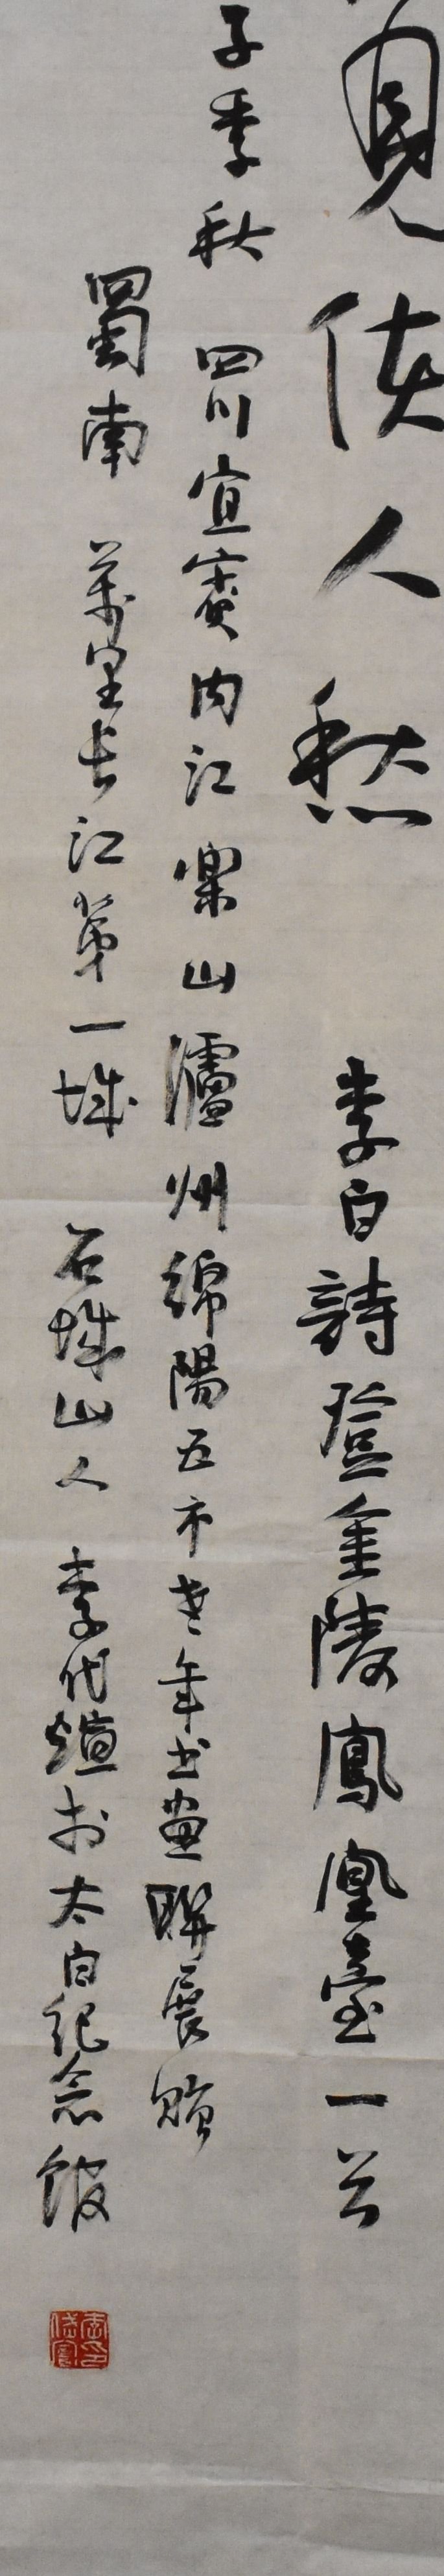 見使人愁 李白詩登金陵鳳凰臺一首
子季秋 四川宜賓內江樂山瀘州綿陽五市老年书畫聯展贈
蜀南 萬里長江第一城 石城山人 李代煊於太白紀念館